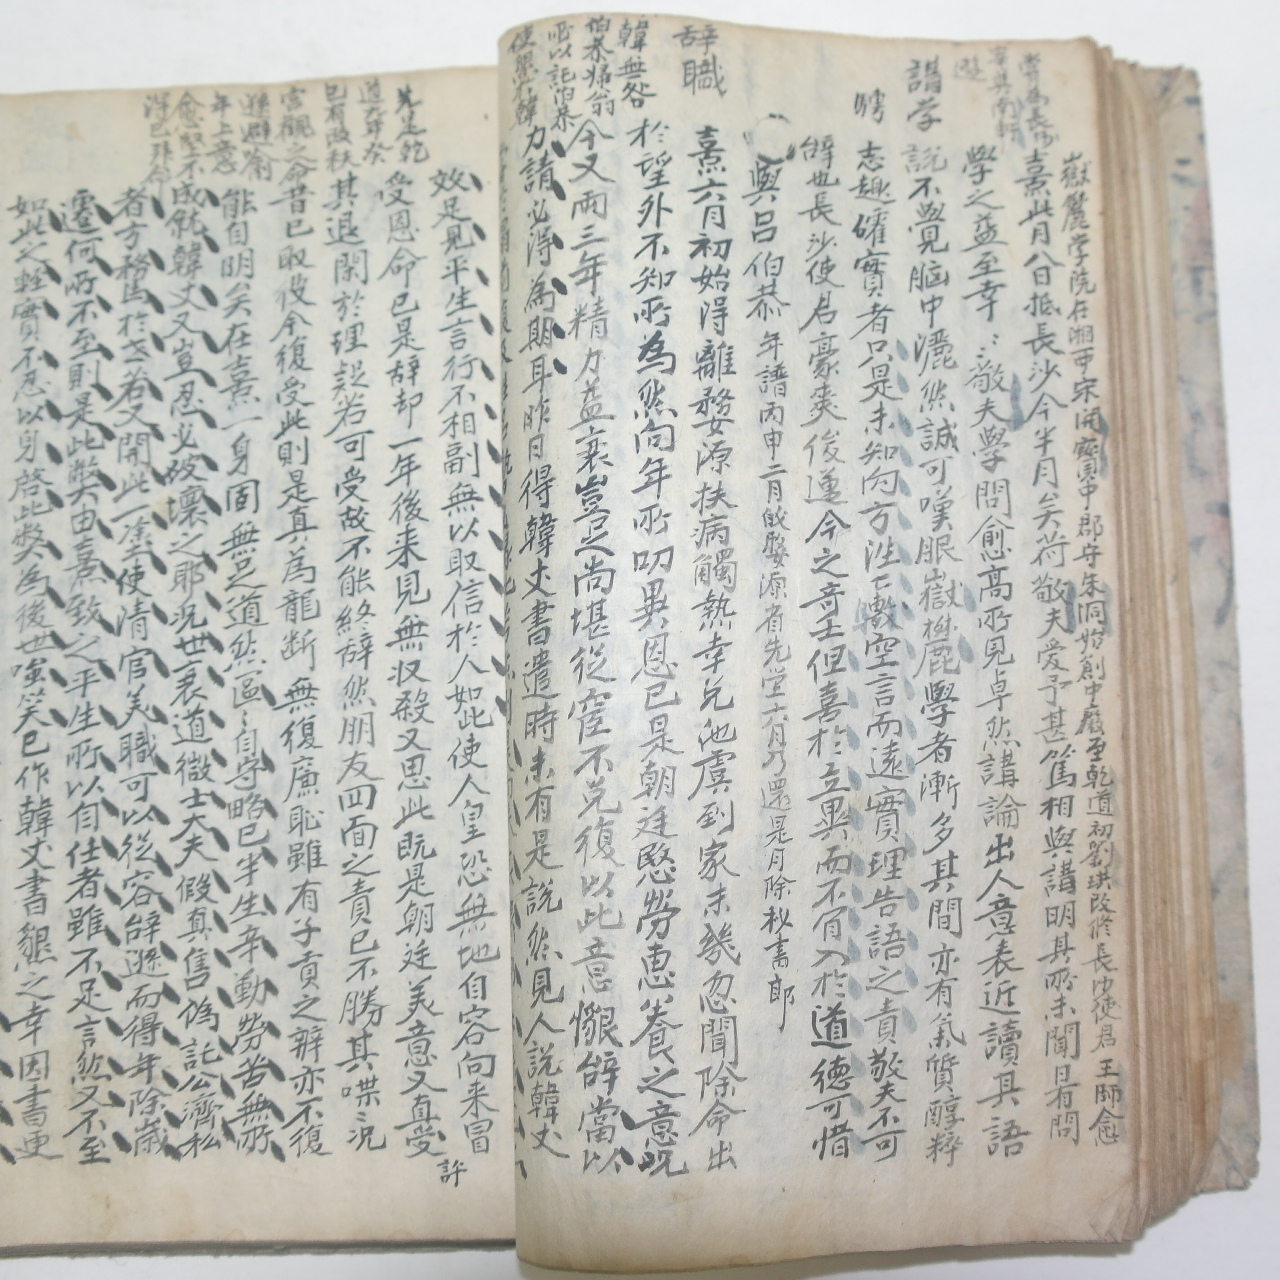 嶽麓学院在湘西宋開寶中郡守朱洞始創中廢至乾道初劉珙改修長沙使君王師愈
熹此月八日抵長沙今半月矣荷敬夫愛予甚篤相與講明其所未聞日有問
學之益至幸〻敬夫學問愈高所見卓然講論出人意表近讀其語
講学
說不覺胸中灑然誠可嘆服嶽麓學者漸多其間亦有氣質醇粹
騁
志趣確實者只是未知向方往〻騖空言而遠實理告語之責敬夫不可
辞也長沙使君豪爽俊邁今之奇士但喜於立異而不肯入於道德可惜
與呂伯恭 年譜丙申二月的婺源省先塋六月乃還是月除秘書郎
辞職
熹六月初始得離婺源扶病觸熱幸免他虞到家未幾忽聞除命出
於望外不知所為然向年所叨異恩已是朝廷愍勞惠養之意況
韓無咎
伯恭婦翁
所以託伯恭
使無咎韓
今又兩三年精力益衰豈足尚堪從宦不免復以此意懇辞當以
力請必得為期耳昨日得韓丈書遣時未有是說然見人說韓丈
效足見平生言行不相副無以取信於人如此使人皇恐無地自容向来冒
受恩命已是辞却一年後来見無收殺又思此既是朝廷美意又真受
許
先是乾
道九年癸
巳有改秩
宮觀之命
遜避踰
年上意
愈堅不
得已拜命
其退閑於理誤若可受故不能終辞然朋友四面之責已不勝其喋〻況
昔已取彼今復受此則是真為龍断無復廉恥雖有子貢之辨亦不復
能自明矣在熹一身固無足道然區〻自守略已半生辛勤勞苦無所
成就韓丈又豈忍必破壞之耶況世衰道微士大夫假真售偽託公濟私
者方務馬於此若又開此一塗使清官美職可以從容辞遜而得年除歲
遷何所不至則是此弊由熹致之平生所以自任者雖不足言然又不至
如此之輕實不忍以身啓此弊為後世嗤笑已作韓丈書懇之幸因書更